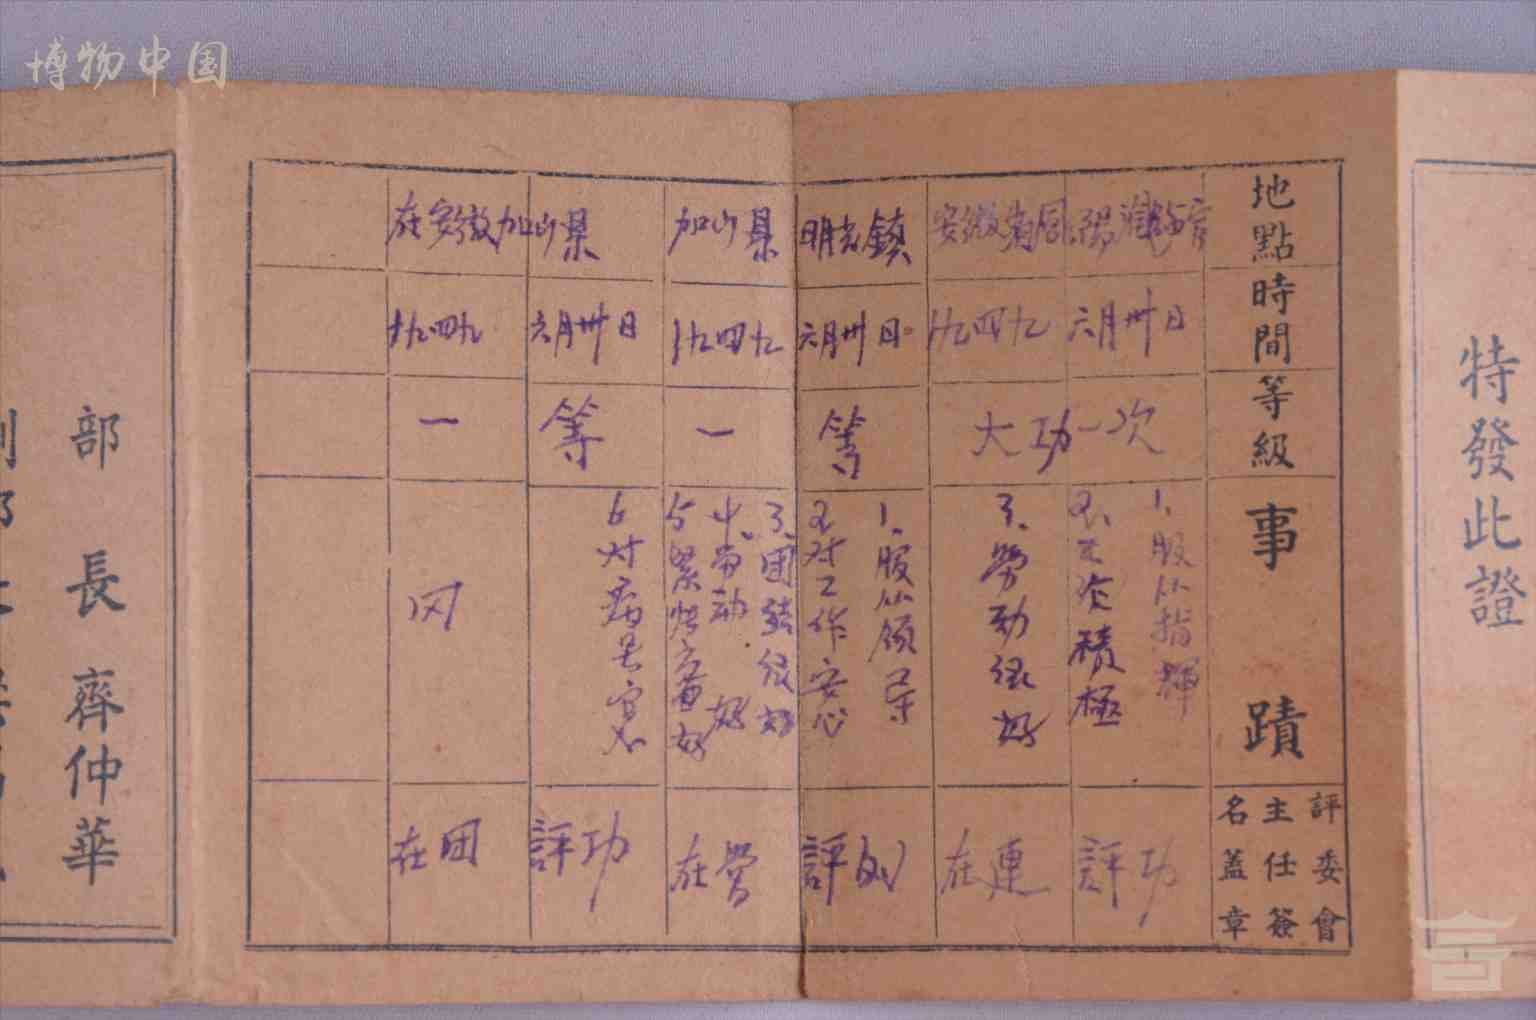 博物中国
特發此證
地點
時間
等級
事蹟
評委會
主任簽
名蓋章
安徽
九四九
六月卅日
大功一次
1、服从指揮
積極
3、勞动很好
在連
評功
加山县
明光鎮
一九四九
六月卅日
一等
1、服从領导
2、对工作安心
3、团結很好
4、劳动好
5
在营
評功
在安徽加山県
一九四九
六月卅日
一等
6对病号
在团
評功
部長齊仲華